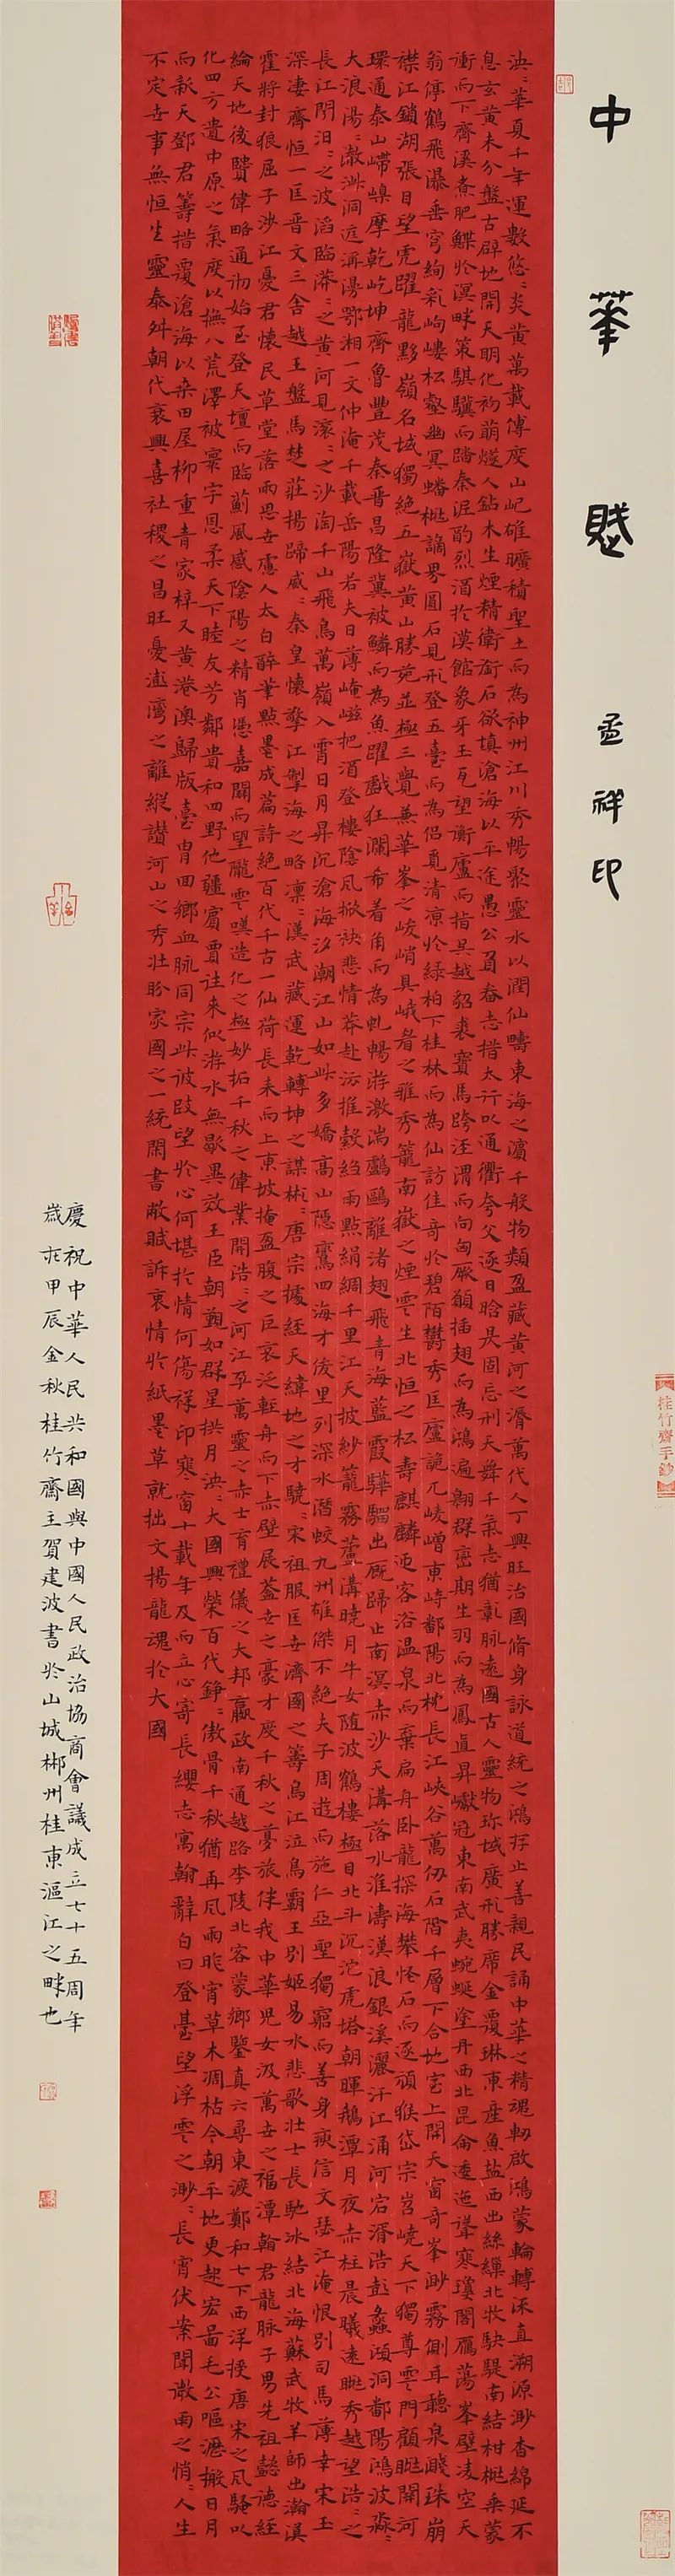 中華賦 孟祥印
泱:華夏千年運數悠:炎黃萬載傳度山屺雄曠積聖土而為神州江川秀暢聚靈水以潤仙疇東海之濱千般物類盈藏黃河之滸萬代人丁興旺治國脩身詠道統之鴻存止善親民誦中華之精魂軔啟鴻蒙輪轉溯源渺杳綿延不
息玄黃未分盤古辟地開天明化初萌燧人鉆木生煙精衛銜石欲填滄海以平途愚公負畚志措太行以通衢夸父逐日晗民固忘刑天舞千氣志猶彰脉遠國古人靈物珎域廣形勝席金覆琳東産魚盐西出絲繅北牧駃騠南結柑橙乘蒙
衝而下齊溪煮肥鰈於溟畔策騏驥而踏秦涯酌烈酒於漠館象牙玉瓦望衡廬而指吳越貂裘寶馬跨涇渭而向匈厥願插翅而為鴻遍翱群巒期生羽而為鳳直昇巘冠東南武夷蜿蜒塗丹西北昆侖逶迤聳寒瓊閣雁蕩峯壁凌空天
翁停鶴飛瀑垂穹絢彩岣嶁松壑幽冥蟠橙謫界圓石見形登五臺而為侶覓清凉於綠柏下桂林而為仙訪佳奇於碧陌欝秀匡廬詭兀崚嶒東峙鄱陽北枕長江峽谷萬仞石階千層下合地宫上開天窗奇峯渺霧側耳聽泉濺珠崩
襟江鎖湖張目望虎躍龍黟嶺名域獨絕五嶽黃山勝苑並極三覺兼華峯之峻峭具峨眉之雅秀籠南嶽之煙雲生北恒之松壽麒麟迎客浴温泉而棄扁舟卧龍探海攀怪石而逐頑猴岱宗岧嶢天下獨尊雲門顧眺開河
環通泰山嶗嵊摩乾屹坤齊魯豐茂秦晋昌隆冀被鱗而為魚躍戲狂瀾希着角而為虬暢游激湍鸕鷗離渚翅飛青海藍霞驊騮出厩歸止南溟赤沙天溝落水淮濤漢浪銀溪灑汗江涌河宕湑浩彭蠡澒洞鄱陽鴻波淼:
大浪湯:澈泚洞庭湃漫鄂湘一文仲淹千載岳陽若夫日薄崦嵫把酒登樓陰風掀袂悲情莽赴沅推轂縐雨點絹綢千里江天披紗籠霧蘆溝曉月牛女随波鶴樓極目北斗沉沱虎塔朝暉鵝潭月夜赤柱晨曦遠眺秀越望浩:之
長江閉汨:之波滔臨莽:之黃河見滚:之沙淘千山飛鳥萬嶺入霄日月昇沉滄海汐潮江山如此多嬌高山隱鸞四海才俊里列深水潛蛟九州雄傑不絕夫子周遊而施仁亞聖獨窮而善身庾信文瑟江淹恨别司馬薄幸宋玉
深淒齊恒一匡晋文三舍越王盤馬楚莊揚蹄威:秦皇懷擎江掣海之略凛:漢武藏運乾轉坤之謀彬:唐宗據經天緯地之才驍:宋祖服匡世濟國之籌烏江泣鳥霸王别姬易水悲歌壮士長馳冰結北海蘇武牧羊師出瀚漠
霍將封狼屈子涉江憂君懷民草堂落雨思世慮人太白醉筆點墨成篇詩絕百代千古一仙荷長耒而上東坡掩盈腹之巨哀泛輕舟而下赤壁展蓋世之豪才度千秋之夢旅伴我中華児女汲萬世之福潭翰君龍脉子男先祖懿德経
綸天地後贒偉略通物始至登天壇而臨薊風感陰陽之精肖憑嘉關而望隴雲嘆造化之極妙拓千秋之偉業開浩:之河江孕萬靈之赤士育禮儀之大邦嬴政南通越路李陵北客蒙鄉鑒真六尋東渡鄭和七下西洋授唐宋之風騷以
化四方遺中原之氣度以撫八荒澤被寰宇恩柔天下睦友芳鄰貴和四野他疆賓賈往來似游水無歇異效王臣朝覲如群星拱月泱:大國興榮百代錚:傲骨千秋猶再風雨昨宵草木凋枯今朝平地更起宏啚毛公嘔瀝搬日月
而新天鄧君籌措覆滄海以桒田屋柳重青家梓又黃港澳歸版臺冑回鄉血脉同宗此彼跂望於心何堪於情何傷祥印寒窗十載年及而立心寄長纓志寓翰辭白日登臺望浮雲之渺:長宵伏案聞澂雨之悄:人生
不定世事無恒生靈泰舛朝代衰興喜社稷之昌旺憂澎灣之離縱讃河山之秀壮盼家國之一統閑書敝賦訴衷情於紙墨草就拙文揚龍魂於大國
慶祝中華人民共和國與中國人民政治協商會議成立七十五周年
歲在甲辰金秋桂竹齋主賀建波書於山城郴州桂東漚江之畔也
桂竹齋手鈔